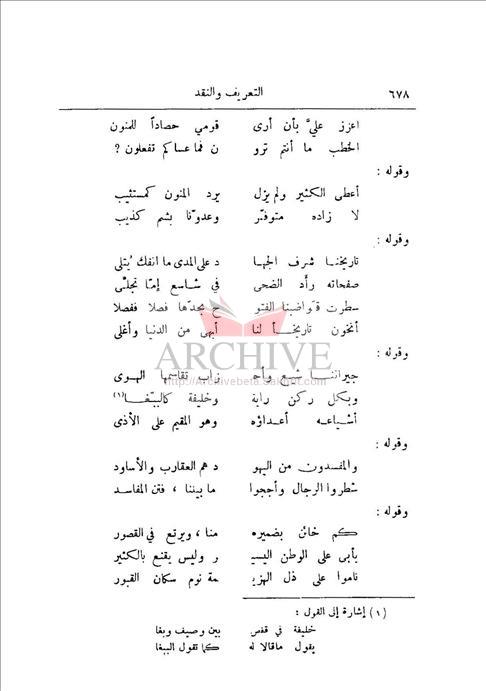 ٦٧٨ التعريف والنقد
اعزز عليّ بأن أرى قومي حصاداً للمنون
الخطب ما أنتم ترو ن فما عساكم تفعلون ؟
وقوله :
أعطى الكثير ولم يزل يرد المنون كمستثيب
لا زاده متوفّر وعدوّنا بشم كذيب
وقوله :
تاريخنا شرف الجها د على المدى ما انفك يُتلى
صفحاته رأد الضحى في شاسع إمّا تجلّى
سطرت قواضبنا الفتو ح بحدّها فصلا ففصلا
أتخون تاريخاً لنا أبهى من الدنيا وأغلى
ARCHIVE
http://Archivebeta.Sakhrit.com
وقوله :
جيراننا شيع وأحـ زاب تقاسمها الهوى
وبكل ركن راية وخليفة كالببّغا (١)
أشياعه أعداؤه وهو المقيم على الأذى
وقوله :
والمفسدون من اليهو د هم العقارب والأساود
شطروا الرجال وأججوا ما بيننا ، فتن المفاسد
وقوله :
كم خائن بضميره منا ، ويرتع في القصور
يأبى على الوطن اليسيـ ر وليس يقنع بالكثير
ناموا على ذل الهزيـ مة نوم سكان القبور
(١) إشارة إلى القول :
خليفة في قفس بين وصيف وبغا
يقول ماقالا له كما تقول الببغا